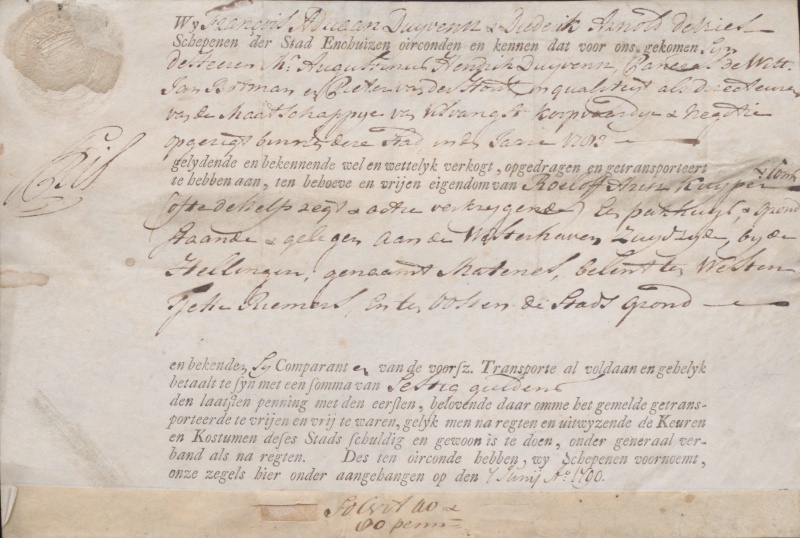 Wy François Adriaan Duyvens & Diederik Arnold de Vries
Schepenen der Stad Enchuizen oirconden en kennen dat voor ons gekomen zyn
de Heeren Mr. Augustinus Hendrik Duyvens, de Witt
Jan Botman en Pieter van der Hout in qualiteyt als directeuren
van de Maatschappye van Visvangst koopvaardye & Negotie
opgeregt binnen dese Stad in den Jaare
gelydende en bekennende wel en wettelyk verkogt, opgedragen en getransporteert
te hebben aan, ten behoeve en vrijen eigendom van Roeloff Kuyper
(ofte de help zegt & actie verkrygende) Een pakhuys, & Grond
staande & gelegen aan de Westerhaven Zuydzyde, by de
Hellingen, genaamt Matenes, belent ten Westen
Riemers, En ten Oosten de Stads Grond
en bekenden Sy Comparanten van de voorsz. Transporte al voldaan en gehelyk
betaalt te syn met een somma van Sestig guldens
den laatsten penning met den eersten, belovende daar omme het gemelde getrans-
porteerde te vrijen en vrij te waren, gelyk men na regten en uitwyzende de Keuren
en Kostumen deses Stads schuldig en gewoon is te doen, onder generaal ver-
band als na regten. Des ten oirconde hebben, wy Schepenen voornoemt,
onze zegels hier onder aangehangen op den 7 Junij Ao. 1790.
Solvit 40 &
80 penn